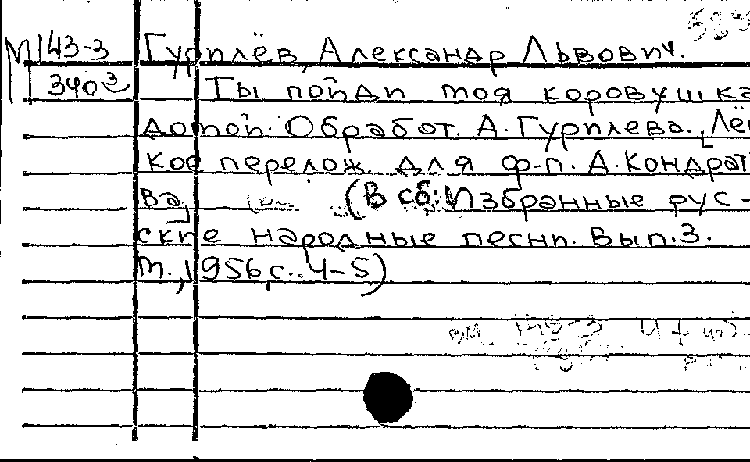 М 143-3 Гурилёв, Александр Львович.
340³ Ты пойди моя коровушка
домой. Обработ. А. Гурилева. Лёг
кое перелож. для ф-п. А. Кондрат
ва, (В сб: Избранные рус-
ские народные песни. Вып. 3.
М., 1956, с. 4-5)